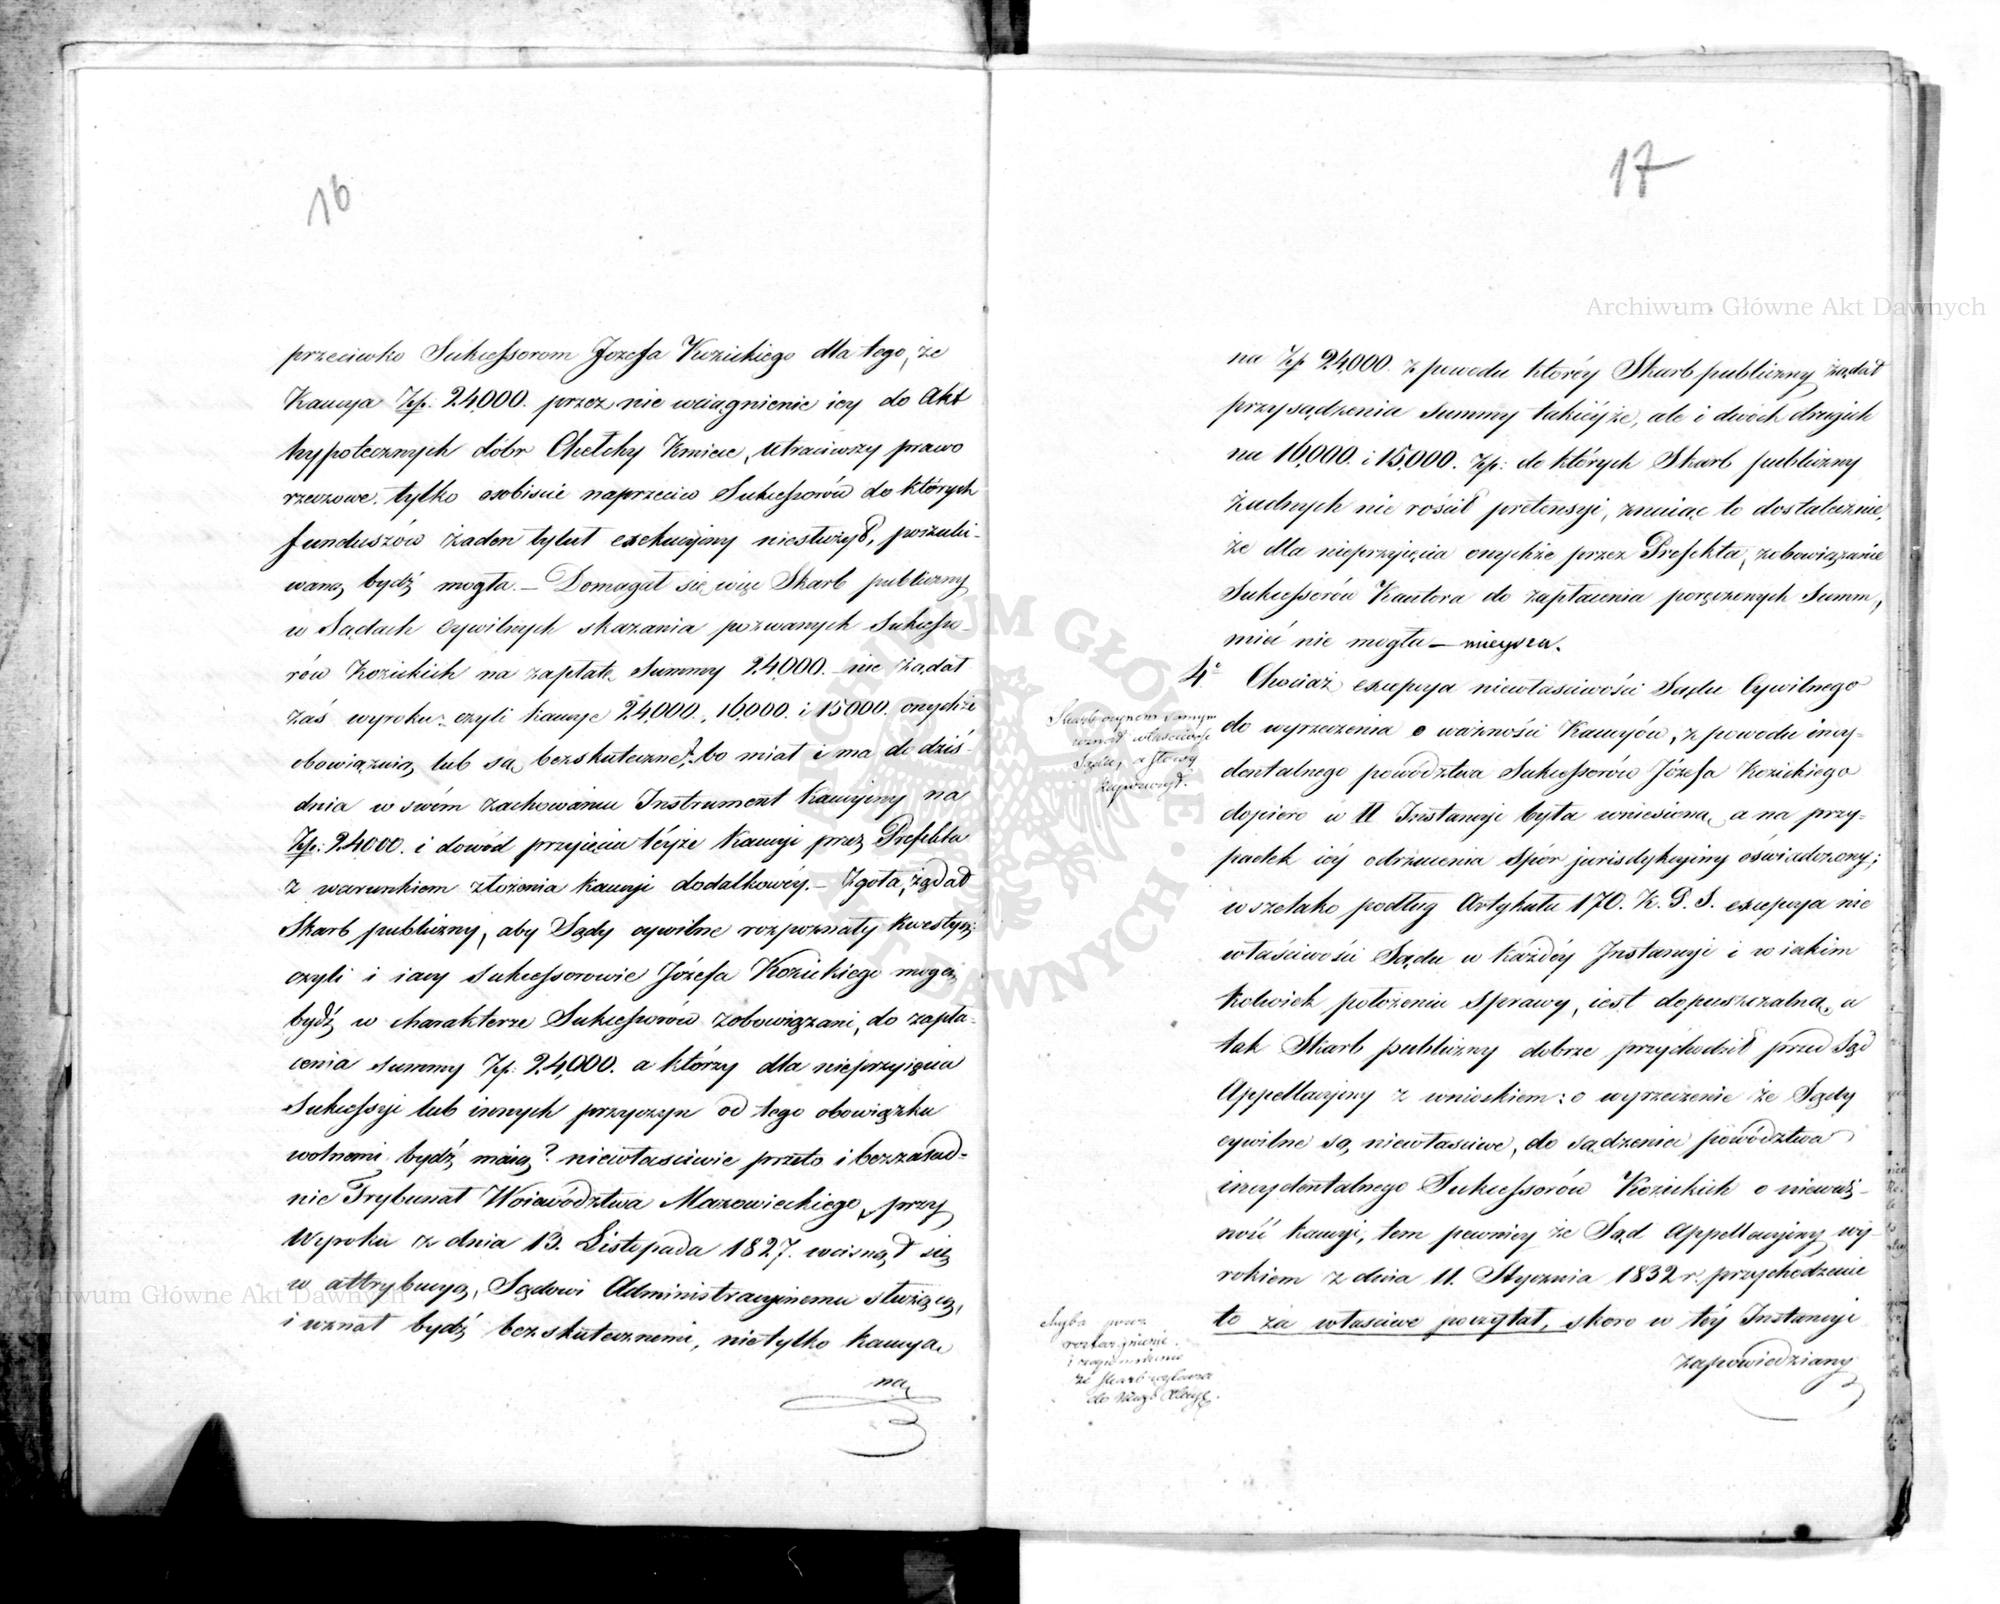 16
przeciwko Sukcessorom Jozefa Kozickiego dla tego, że
Kaucya Złp: 24,000. przez nie wciągnienie iey do Akt
hypotecznych dóbr Chełchy Kmiece, utraciwszy prawo
rzeczowe. tylko osobiscie naprzeciw Sukcessorów do których
funduszów żaden tytuł exekucyiny niesłużył, poszuki-
waną bydź mogła. – Domagał się więc Skarb publiczny
w Sądach Cywilnych skazania pozwanych Sukcesso-
rów Kozickich na zapłatę Summy 24,000. – nie żądał
zaś wyroku: czyli kaucye 24,000., 16,000. i 15000. onychże
obowiązuią lub są bezskuteczne?, bo miał i ma do dziś
dnia w swém zachowaniu Instrument kaucyiny na
Złp: 24,000. i dowód przyięcia téyże kaucyi przez Prefekta
z warunkiem złożenia kaucyi dodatkowéy. – Zgoła, żądał
Skarb publiczny, aby Sądy cywilne rozpoznały kwestyą:
czyli i iacy Sukcessorowie Józefa Kozickiego mogą
bydź w charakterze Sukcessorów zobowiązani, do zapła-
cenia summy Złp: 24,000. a którzy dla nieprzyięcia
Sukcessyi lub innych przyczyn od tego obowiązku
wolnemi bydź maią? niewłaściwie przeto i bezzasad-
nie Trybunał Woiewództwa Mazowieckiego, przy
Wyroku z dnia 13. Listopada 1827. wcisnął się
w attrybucyą, Sądowi Administracyinemu służącą,
i uznał bydź bezskutecznemi, nietylko kaucyą
na
17
na Złp 24,000. z powodu któréy Skarb publiczny żądał
przysądzenia Summy takiéyże, ale i dwóch drugich
na 16,000. i 15,000. Złp: do których Skarb publiczny
żadnych nie rościł pretensyi, znaiąc to dostatecznie,
że dla nieprzyięcia onychże przez Prefekta, zobowiązanie
Sukcessorów Kautora do zapłacenia poręczonych Summ,
mieć nie mogła – mieysca.
4° Chociaż excepcya niewłaściwości Sądu Cywilnego
do wyrzeczenia o ważności Kaucyów, z powodu incy-
dentalnego powództwa Sukcessorów Józefa Kozickiego
dopiero w II Instancyi była wniesioną, a na przy-
padek iéy odrzucenia Spór jurisdykcyiny oświadczony;
wszelako podług Artykułu 170. K. P. S. excepcya nie
właściwości Sądu w każdéy Instancyi i w iakim
kolwiek położeniu Sprawy, iest dopuszczalna, a
tak Skarb publiczny dobrze przychodził przed Sąd
Appellacyiny z wnioskiem: o wyrzeczenie że Sądy
cywilne są niewłaściwe, do sądzenia powództwa
incydentalnego Sukcessorów Kozickich o nieważ-
ność kaucyi, tem pewniey że Sąd Appellacyiny wy-
rokiem z dnia 11. Stycznia 1832 r. przychodzenie
to za właściwe poczytał, skoro w téy Instancyi
zapowiedziany
Skarb czynem samym
uznał właściwość
Sądu, a słowy
przez
że Skarb
do
Archiwum Główne Akt Dawnych
Archiwum Główne Akt Dawnych
ARCHIWUM GŁÓWNE · AKT DAWNYCH ·